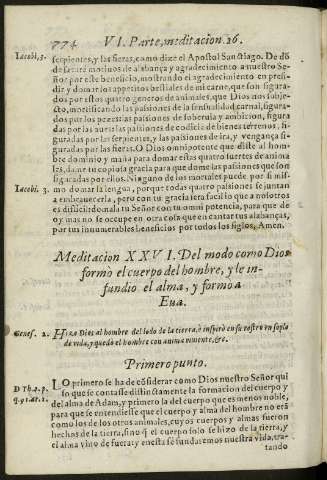 774 VI. Parte, meditacion 26.
Iacobi, 3. serpientes, y las fieras, como dize el Apostol Santiago. De dõ
de sacarè motiuos de alabança y agradecimiento a nuestro Se-
ñor por este beneficio, mostrando el agradecimiento en presi-
dir y domar los apetitos bestiales de mi carne, que son figura-
dos por estos quatro generos de animales, que Dios nos subje-
to, mortificando las passiones de la sensualidad carnal, figura-
das por los peces: las passiones de soberuia y ambicion, figura
das por las aues: las passiones de codicia de bienes terrenos, fi-
guradas por las serpientes, y las passiones de ira, y vengança fi-
guradas por las fieras. O Dios omnipotente que diste al hom-
bre dominio y maña para domar estas quatro suertes de anima
les, dame tu copiosa gracia para que dome las passiones que son
figuradas por ellos. Ninguno de los mortales puede por si mis-
Iacobi. 3. mo domar la lengua, porque todas quatro passiones se juntan
a embrauecerla, pero con tu gracia sera facil lo que a nosotros
es dificil: domala tu Señor con tu omnipotencia, para que de
oy mas no se ocupe en otra cosa que en cantar tus alabanças,
por tus innumerables beneficios por todos los siglos, Amen.
Meditacion XXVI. Del modo como Dios
formò el cuerpo del hombre, y le in-
fundio el alma, y formo a
Eua.
Genes. 2. Hizo Dios al hombre del lodo de la tierra, è inspirò en su rostro vn soplo
de vida, y quedò el hombre con anima viuiente, &c.
Primero punto.
D. Th. 1. p. LO primero se ha de cõsiderar como Dios nuestro Señor qui
q. 91. ar. 1. so que se contasse distintamente la formacion del cuerpo y
del alma de Adam, y primero la del cuerpo que es menos noble,
para que se entendiesse que el cuerpo y alma del hombre no erã
como los de los otros animales, cuyos cuerpos y almas fueron
hechos de la tierra, sino q̃ el cuerpo solo se hizo de la tierra, y
el alma vino de fuera: y en esta sè fundaremos nuestra vida, tra-
tando